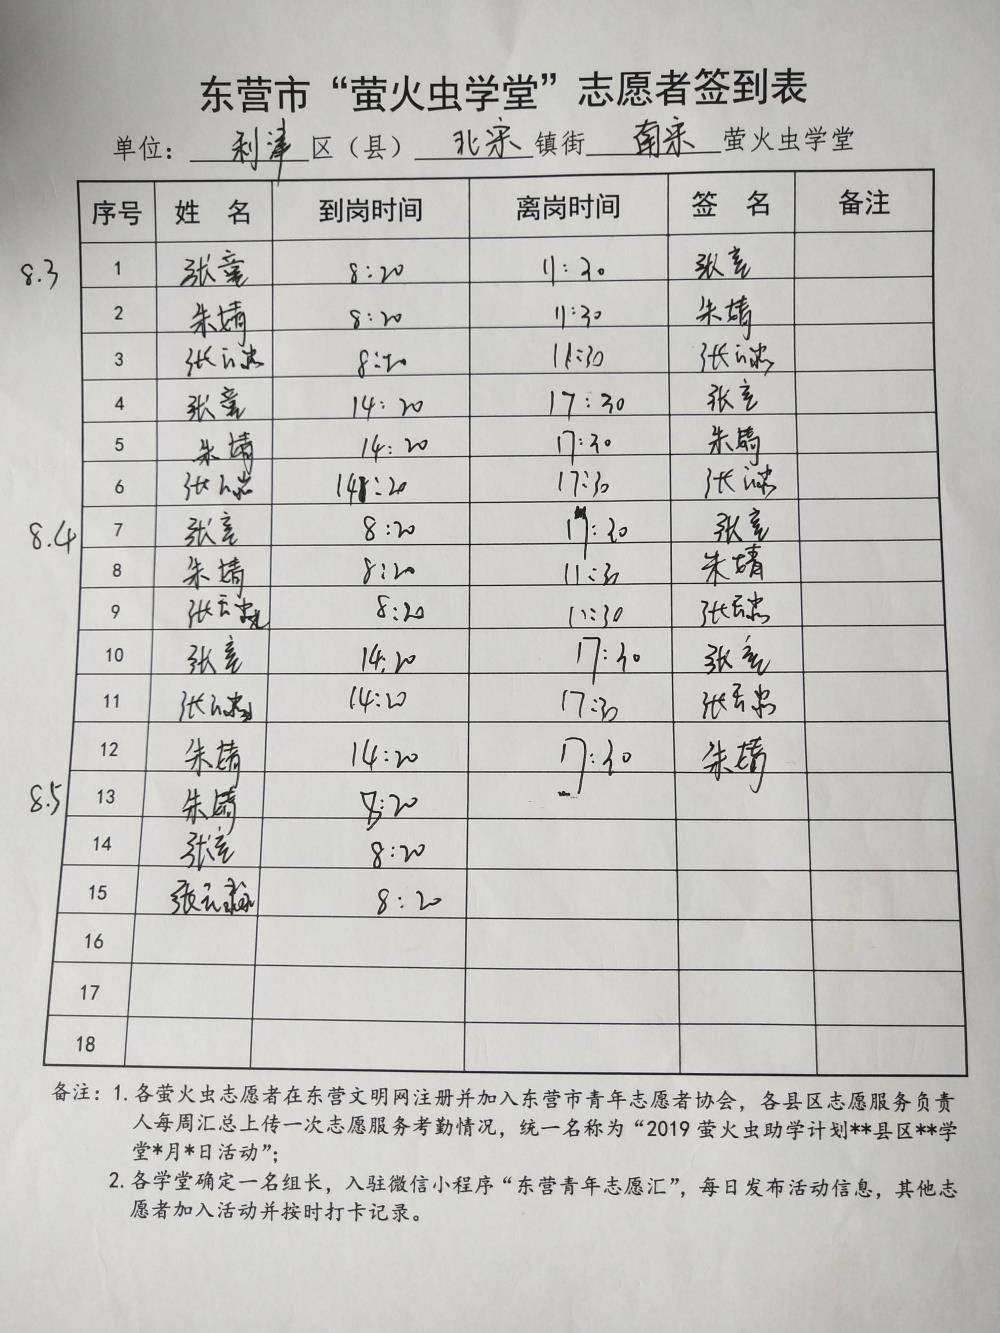 东营市“萤火虫学堂”志愿者签到表
单位：利津区（县）北宋镇街南宋萤火虫学堂
序号 姓名 到岗时间 离岗时间 签名 备注
8.3 1 张童 8:20 11:30 张童
2 朱婧 8:20 11:30 朱婧
3 张云忠 8:20 11:30 张云忠
4 张童 14:20 17:30 张童
5 朱婧 14:20 17:30 朱婧
6 张云忠 14:20 17:30 张云忠
8.4 7 张童 8:20 11:30 张童
8 朱婧 8:20 11:30 朱婧
9 张云忠 8:20 11:30 张云忠
10 张童 14:20 17:30 张童
11 张云忠 14:20 17:30 张云忠
12 朱婧 14:20 17:30 朱婧
8.5 13 朱婧 8:20
14 张童 8:20
15 张云 8:20
16
17
18
备注：1.各萤火虫志愿者在东营文明网注册并加入东营市青年志愿者协会，各县区志愿服务负责
人每周汇总上传一次志愿服务考勤情况，统一名称为“2019萤火虫助学计划**县区**学
堂*月*日活动”；
2.各学堂确定一名组长，入驻微信小程序“东营青年志愿汇”，每日发布活动信息，其他志
愿者加入活动并按时打卡记录。